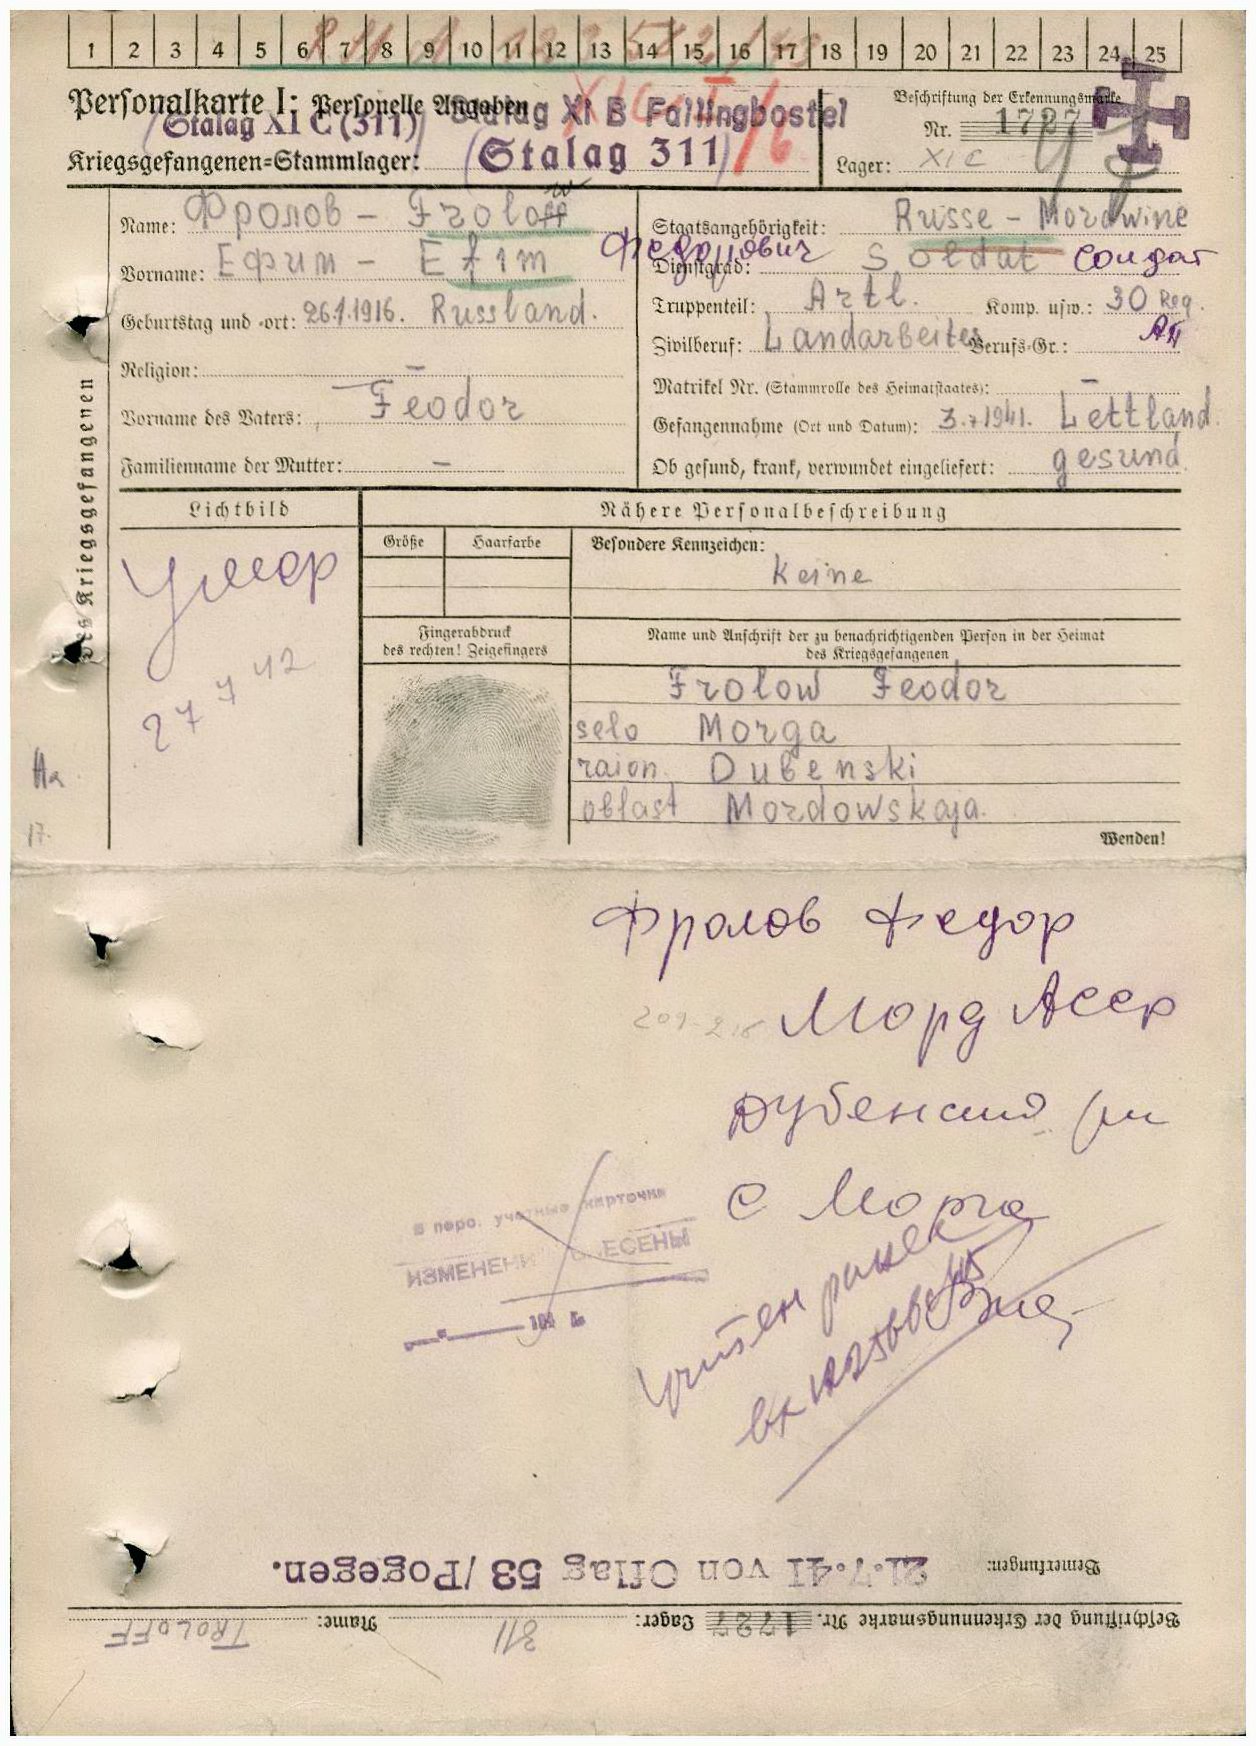 1 2 3 4 5 6 7 8 9 10 11 12 13 14 15 16 17 18 19 20 21 22 23 24 25
Personalkarte I: Personelle Angaben
Stalag XI B Fallingbostel
Beschriftung der Erkennungsmarke
Stalag XI C (311)
Nr. 1727
Kriegsgefangenen-Stammlager: (Stalag 311)
Lager: XI C
des Kriegsgefangenen
Name: Фролов - Froloff
Staatsangehörigkeit: Russe - Mordwine
Vorname: Ефим - Efim Федорович
Dienstgrad: Soldat солдат
Geburtstag und -ort: 26.1.1916. Russland.
Truppenteil: Artl. Komp. usw.: 30 Reg.
Zivilberuf: Landarbeiter Berufs-Gr.: АП
Religion: -
Matrikel Nr. (Stammrolle des Heimatstaates): -
Vorname des Vaters: Feodor
Gefangennahme (Ort und Datum): 3.7.1941. Lettland.
Familienname der Mutter: -
Ob gesund, krank, verwundet eingeliefert: gesund
Lichtbild
Nähere Personalbeschreibung
Größe
Haarfarbe
Besondere Kennzeichen:
Keine
умер
27 7 42
Fingerabdruck
des rechten! Zeigefingers
Name und Anschrift der zu benachrichtigenden Person in der Heimat
des Kriegsgefangenen
Frolow Feodor
selo Morga
raion Dubenski
oblast Mordowskaja.
На
17.
Wenden!
Фролов Федор
Морд АССР
Дубенский рн
с Морга
В перс. учетные карточки
ИЗМЕНЕНИ ВНЕСЕНЫ
194 г.
учтен ранее
Bemerkungen: 21.7.41 von Oflag 53/Pogegen.
Beschriftung der Erkennungsmarke Nr. 1727 Lager: 311 Name: FROLOFF